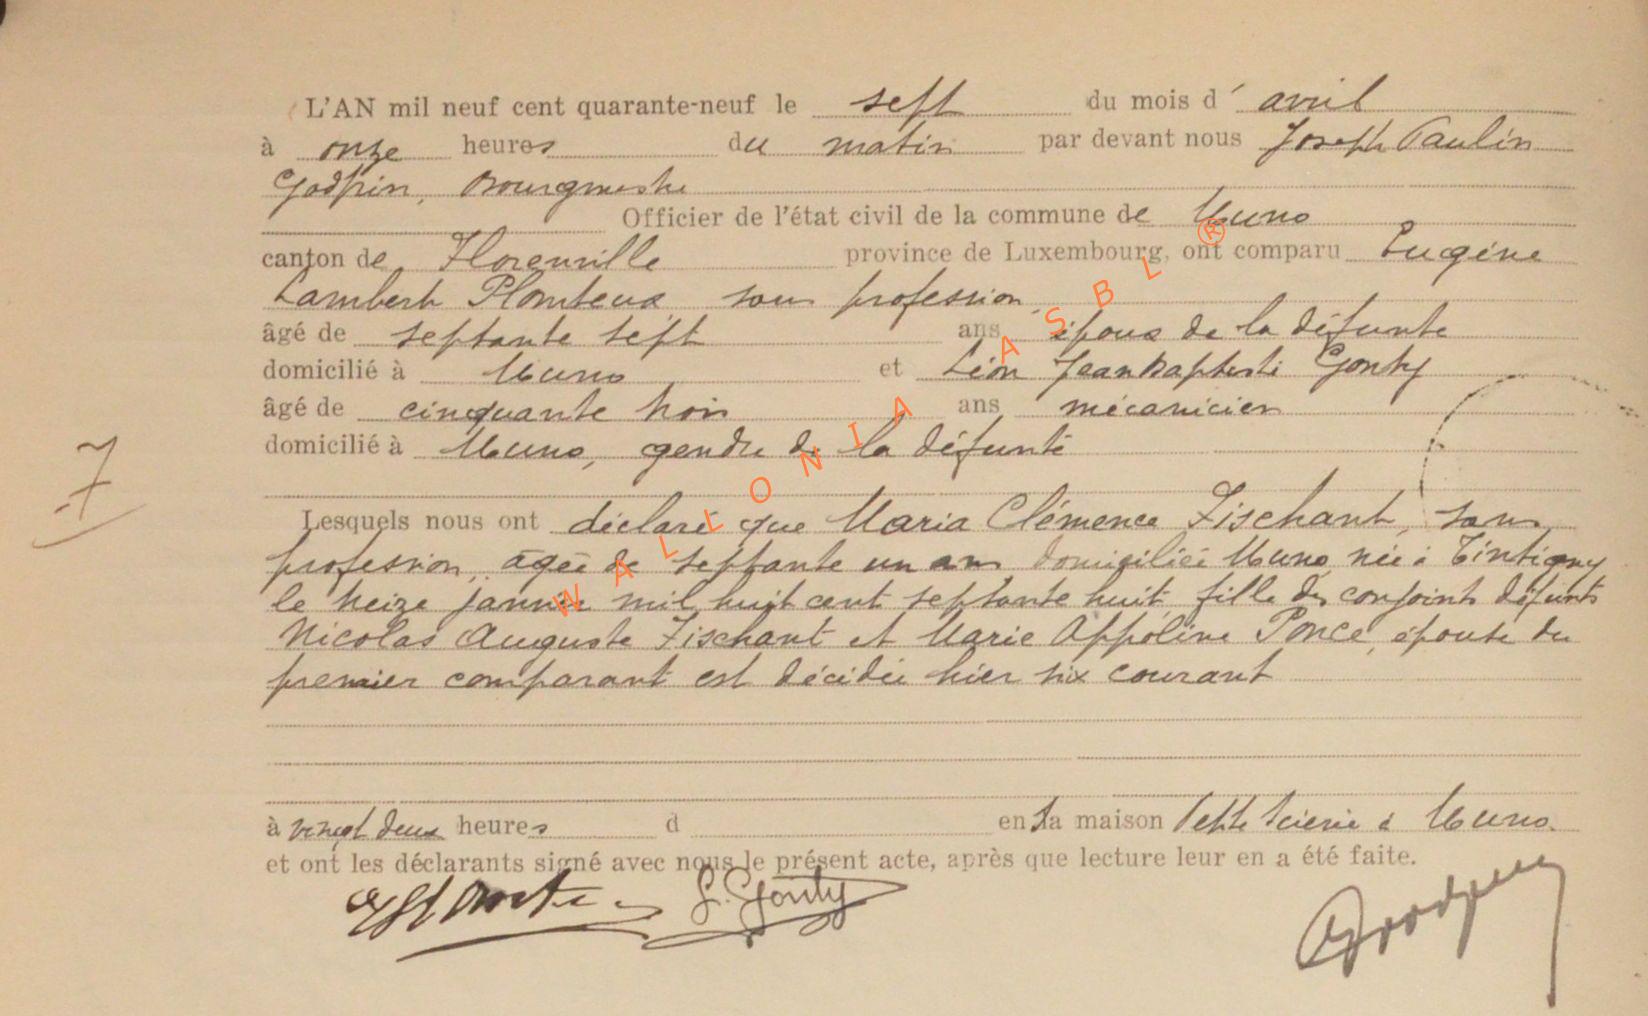 L'AN mil neuf cent quarante-neuf le sept du mois d' avril
à onze heures du matin par devant nous Joseph Paulin
Godfrin, Bourgmestre
Officier de l'état civil de la commune de Muno
canton de Florenville province de Luxembourg, ont comparu Eugène
Lambert Plomteux sans profession
âgé de septante sept ans époux de la défunte
domicilié à Muno et Léon Jean Baptiste Gonty
âgé de cinquante trois ans mécanicien
domicilié à Muno, gendre de la défunte
7
Lesquels nous ont déclaré que Maria Clémence Fischant, sans
profession, agée de septante un ans, domiciliée Muno, née à Tintigny
le treize janvier mil huit cent septante huit, fille des conjoints défunts
Nicolas Auguste Fischant et Marie Appoline Ponce, épouse du
premier comparant est décédée hier six courant
à vingt deux heures d en sa maison Petite Scierie à Muno.
et ont les déclarants signé avec nous le présent acte, après que lecture leur en a été faite.
L. Gonty
WALLONIA ASBL ®